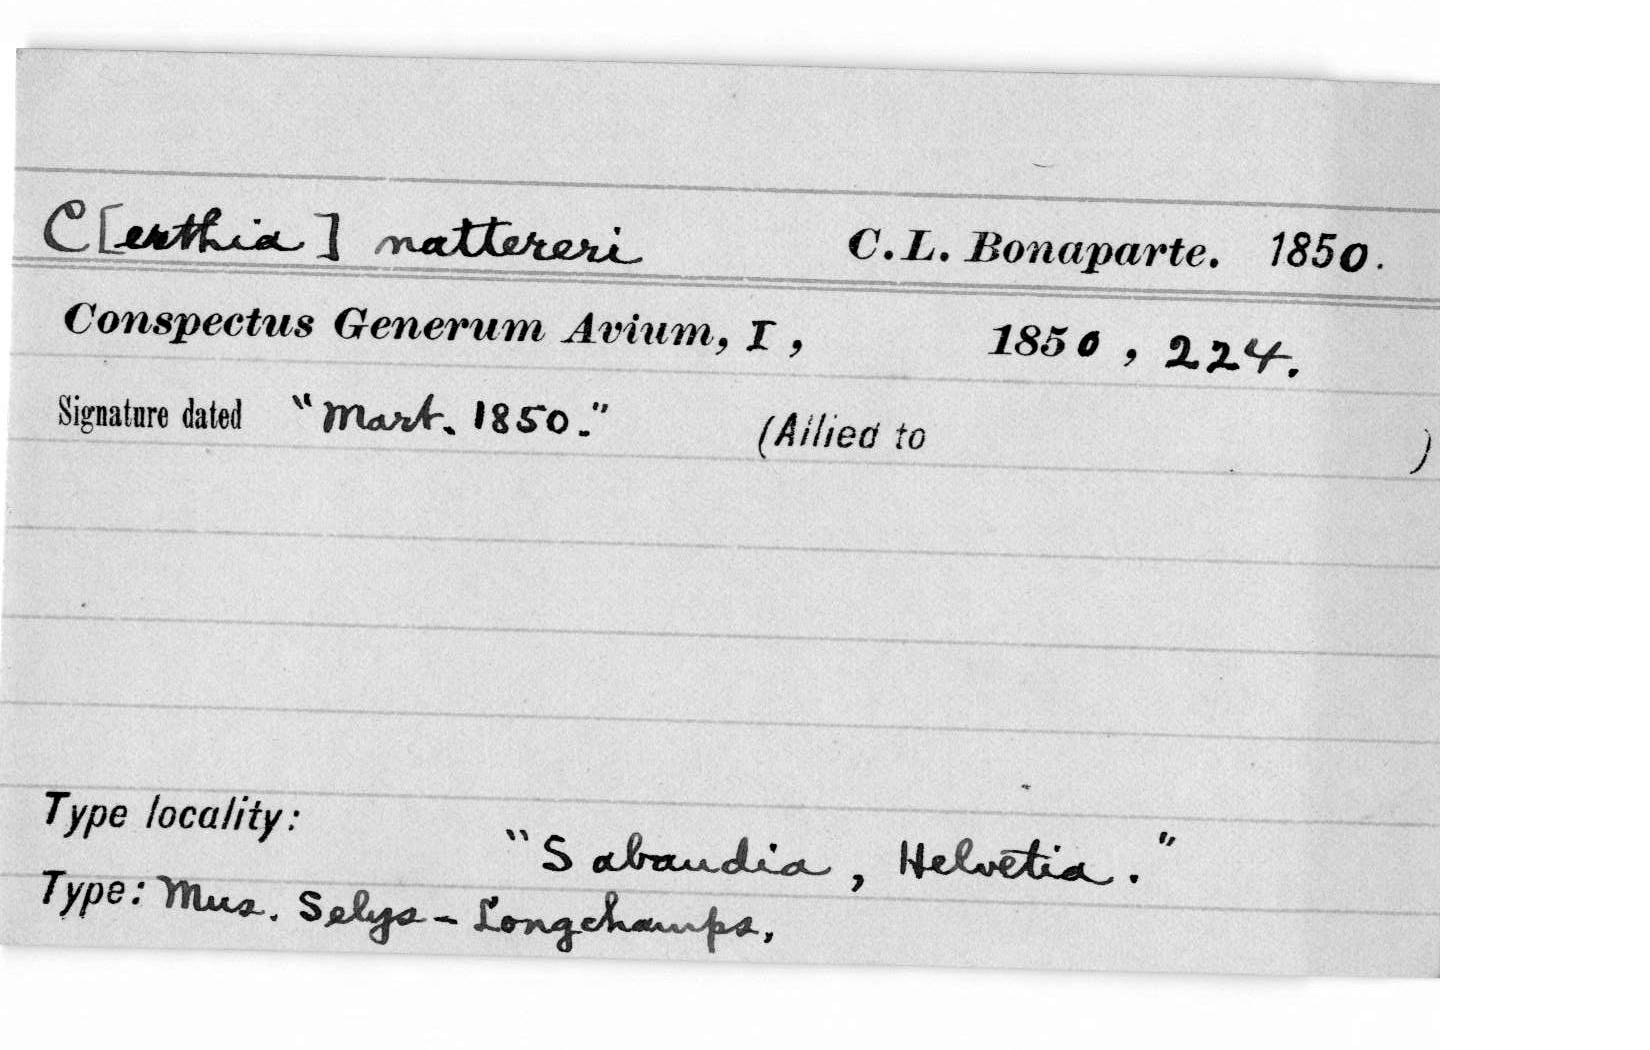 C[erthia] nattereri C.L. Bonaparte. 1850.
Conspectus Generum Avium, I, 1850, 224.
Signature dated "Mart. 1850." (Allied to )
Type locality:
"Sabaudia, Helvetia."
Type: Mus. Selys-Longchamps,